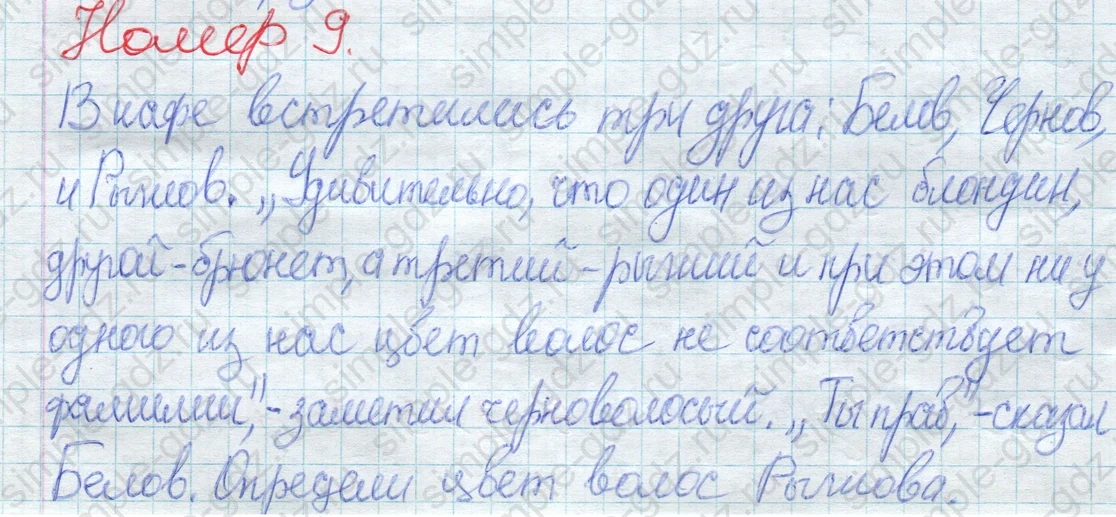 Номер 9.
В кафе встретились три друга: Белов, Чернов,
и Рыжов. „Удивительно, что один из нас блондин,
другой - брюнет, а третий - рыжий и при этом ни у
одного из нас цвет волос не соответствует
фамилии," - заметил черноволосый. „Ты прав," - сказал
Белов. Определи цвет волос Рыжова.
simple-gdz.ru